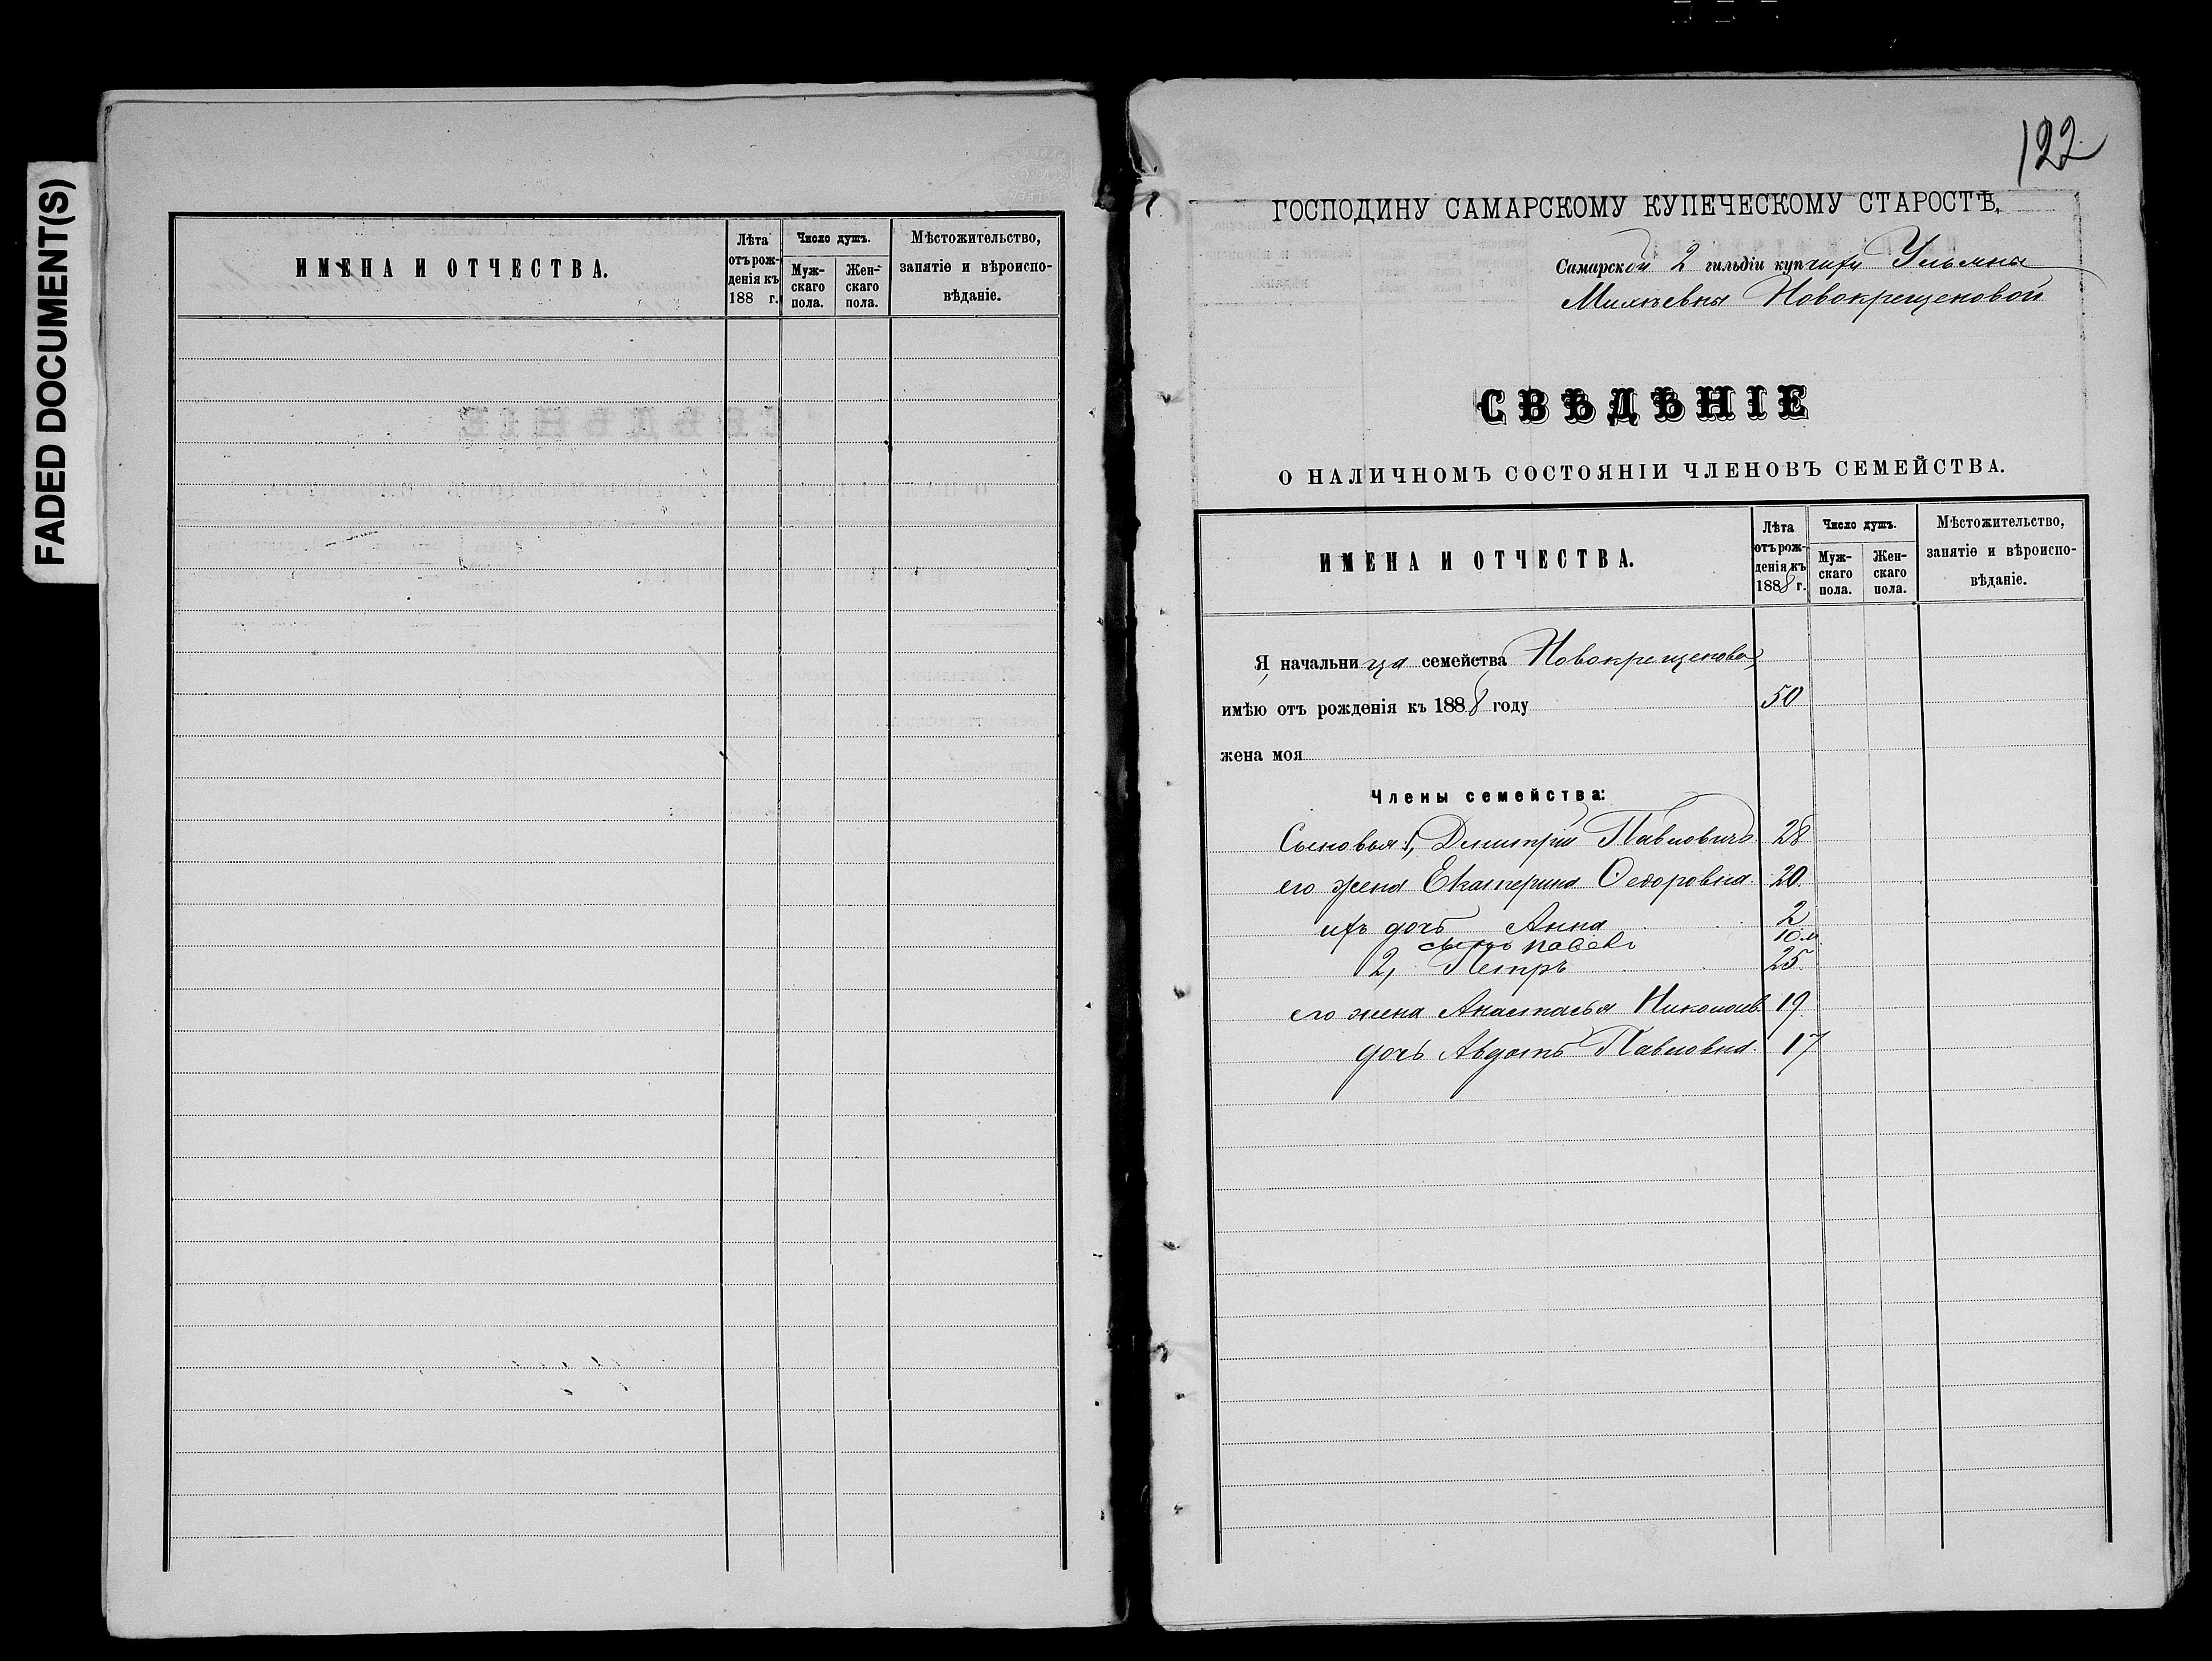 FADED DOCUMENT(S)
ИМЕНА И ОТЧЕСТВА.
Лѣта отъ рож-денія къ 188 г.
Число душъ.
Муж-скаго пола.
Жен-скаго пола.
Мѣстожительство, занятіе и вѣроиспо-вѣданіе.
122
ГОСПОДИНУ САМАРСКОМУ КУПЕЧЕСКОМУ СТАРОСТѢ,
Самарской 2 гильдіи купчихи Ульяны
Новокрещеновой
СВѢДѢНІЕ
О НАЛИЧНОМЪ СОСТОЯНІИ ЧЛЕНОВЪ СЕМЕЙСТВА.
ИМЕНА И ОТЧЕСТВА.
Лѣта отъ рож-денія къ 1888 г.
Число душъ.
Муж-скаго пола.
Жен-скаго пола.
Мѣстожительство, занятіе и вѣроиспо-вѣданіе.
Я, начальница семейства Новокрещенова,
имѣю отъ рожденія къ 1888 году 50
жена моя
Члены семейства:
Сыновья: 1, Димитрій Павловичъ 28
его жена Екатерина Ѳедоровна 20
ихъ дочь Анна 2
сынъ Павелъ 10 м.
2, Петръ 25
его жена Анастасья Николаев. 19
дочь Авдотья Павловна 17